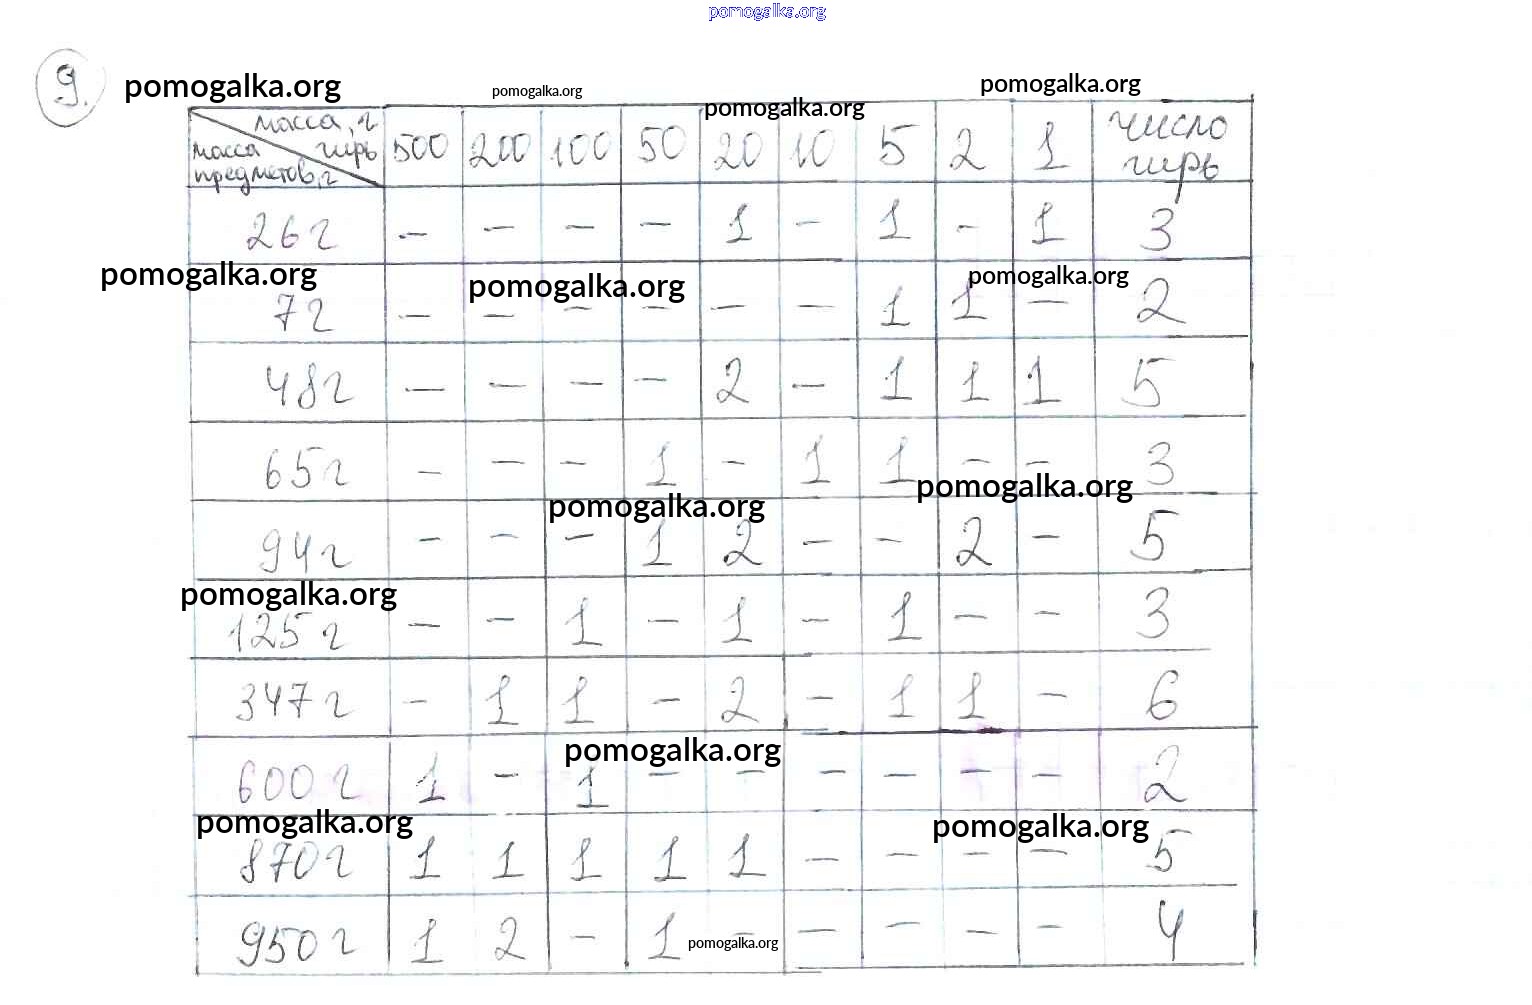 pomogalka.org
9.
pomogalka.org pomogalka.org pomogalka.org pomogalka.org
масса, г гирь масса предметов, г 500 200 100 50 20 10 5 2 1 число гирь
26 г – – – – 1 – 1 – 1 3
pomogalka.org pomogalka.org pomogalka.org
7 г – – – – – – 1 1 – 2
48 г – – – – 2 – 1 1 1 5
65 г – – – 1 – 1 1 – – 3
pomogalka.org pomogalka.org
94 г – – – 1 2 – – 2 – 5
pomogalka.org
125 г – – 1 – 1 – 1 – – 3
347 г – 1 1 – 2 – 1 1 – 6
pomogalka.org
600 г 1 – 1 – – – – – – 2
pomogalka.org pomogalka.org
870 г 1 1 1 1 1 – – – – 5
950 г 1 2 – 1 – – – – – 4
pomogalka.org